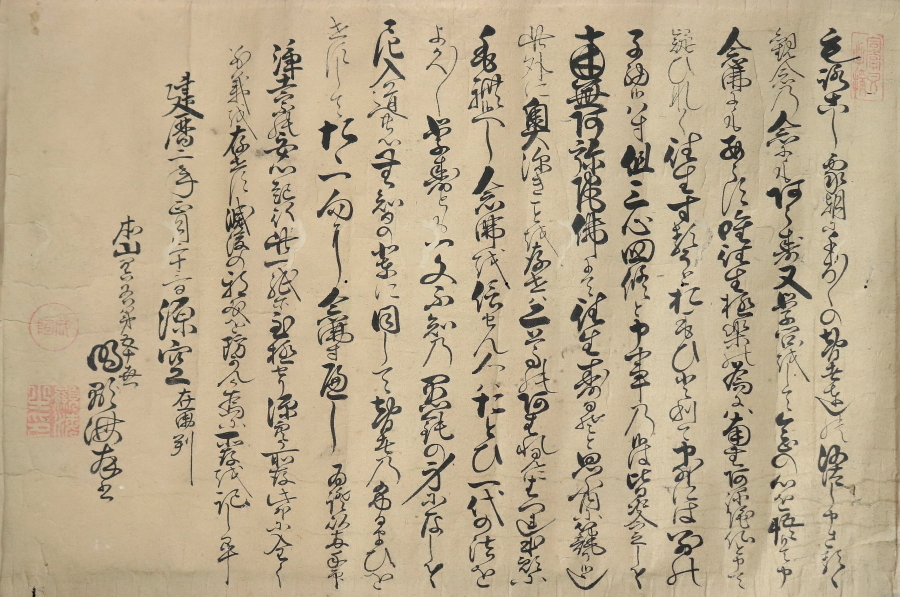 もろこし我朝にもろ〱の智者達の沙汰し申さるゝ
観念の念にもあらず又学問をして念の心を悟て申
念佛にもあらず唯往生極楽の為には南無阿弥陀仏と申て
疑ひなく往生するぞと思ひとりて申外には別の
子細候はず但三心四修と申事の候は皆決定して
南無阿弥陀佛にて往生するぞと思内に籠候也
此外に奥深きことを存せば二尊の阿われみにはつれ本願に
もれ候べし念佛を信せん人はたとひ一代の法を
よく〱学すとも一文不知の愚鈍の身になして
尼入道の無智の輩に同して智者のふるまひを
せずしてたゝ一向に念佛すべし 為証以両手印
浄土宗の安心起行此一紙に至極せり源空が所存此外に全く
別義を存せず滅後の邪義を防がんが為に所存を記し畢
建暦二年正月二十三日 源空 在御判
本山